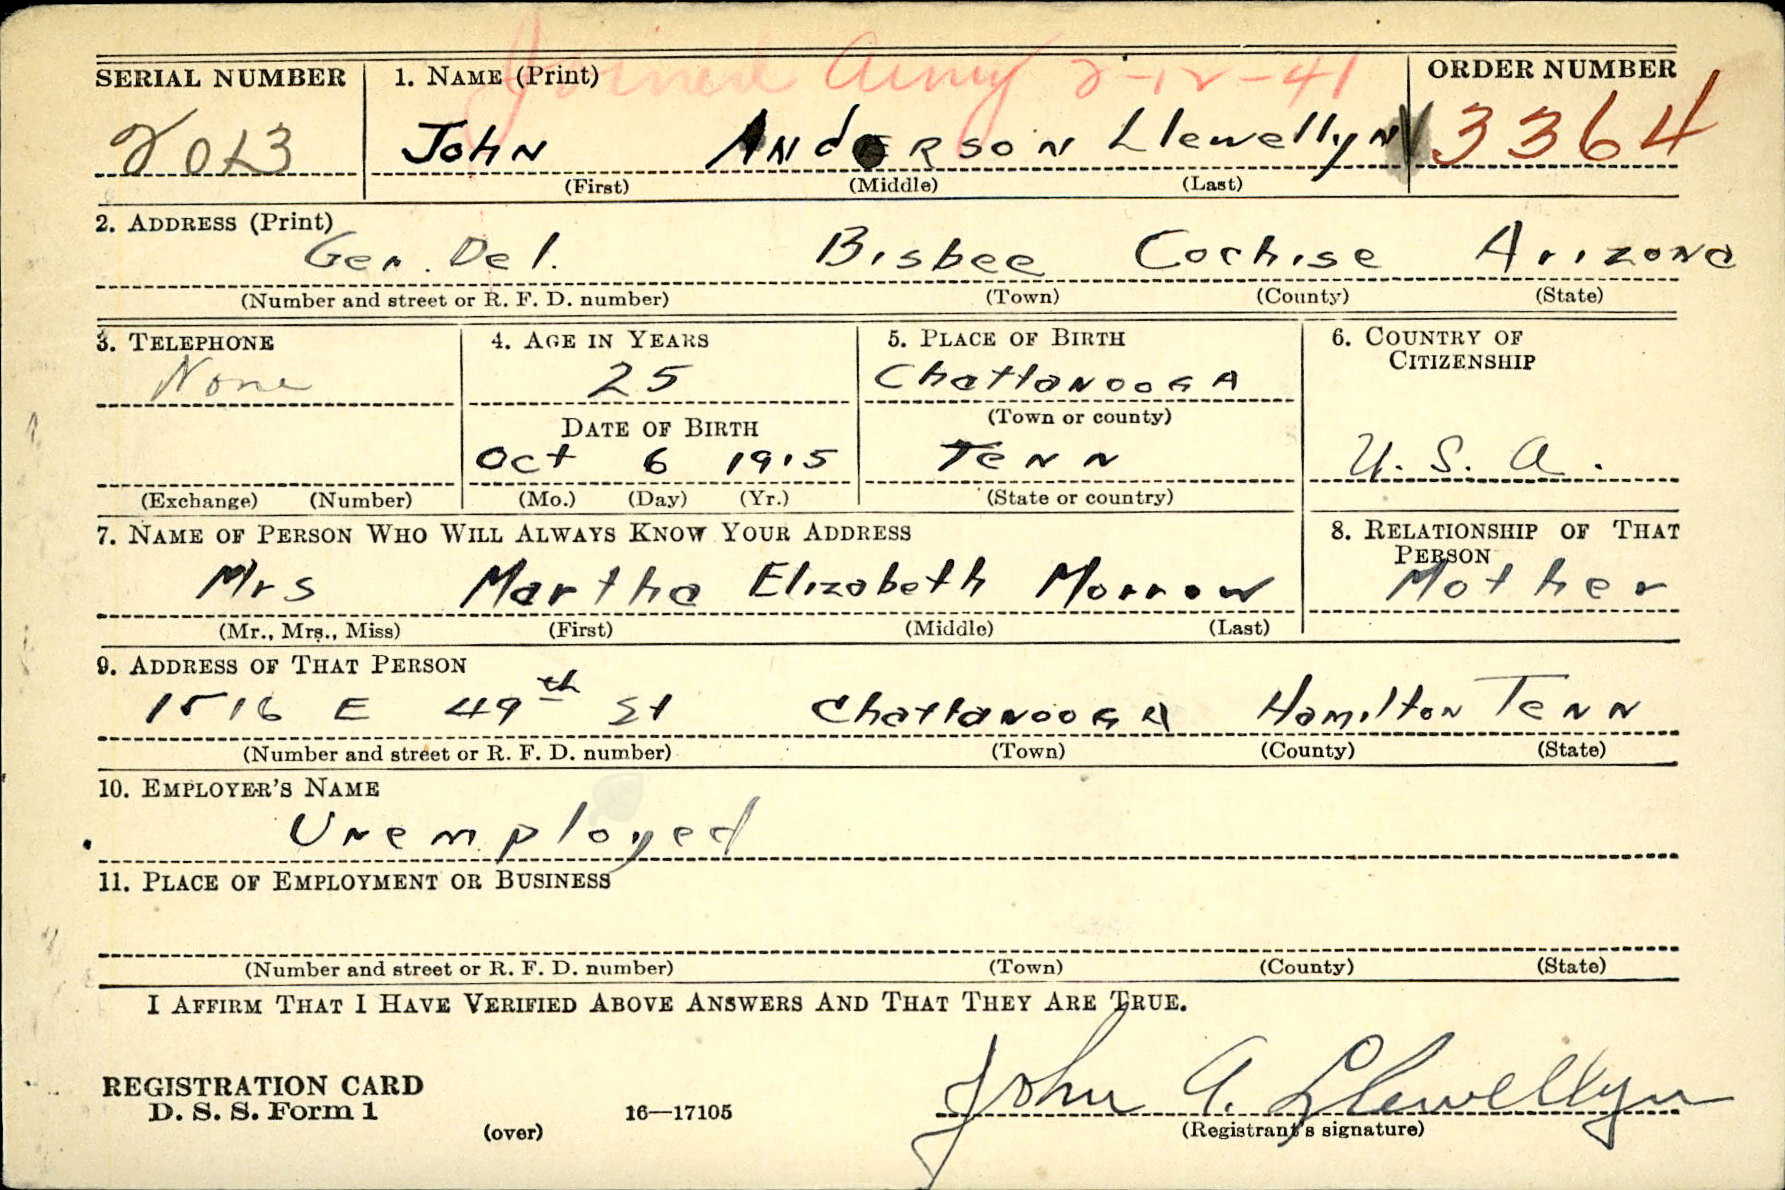 Joined Army 2-12-41
SERIAL NUMBER 1. NAME (Print) ORDER NUMBER
John Anderson Llewellyn 3364
(First) (Middle) (Last)
2. ADDRESS (Print)
Gen. Del. Bisbee Cochise Arizona
(Number and street or R. F. D. number) (Town) (County) (State)
3. TELEPHONE 4. AGE IN YEARS 5. PLACE OF BIRTH 6. COUNTRY OF CITIZENSHIP
None 25 Chattanooga
(Town or county)
DATE OF BIRTH
Oct 6 1915 Tenn U. S. A.
(Exchange) (Number) (Mo.) (Day) (Yr.) (State or country)
7. NAME OF PERSON WHO WILL ALWAYS KNOW YOUR ADDRESS 8. RELATIONSHIP OF THAT PERSON
Mrs Martha Elizabeth Morrow Mother
(Mr., Mrs., Miss) (First) (Middle) (Last)
9. ADDRESS OF THAT PERSON
1516 E 49th St Chattanooga Hamilton Tenn
(Number and street or R. F. D. number) (Town) (County) (State)
10. EMPLOYER'S NAME
Unemployed
11. PLACE OF EMPLOYMENT OR BUSINESS
(Number and street or R. F. D. number) (Town) (County) (State)
I AFFIRM THAT I HAVE VERIFIED ABOVE ANSWERS AND THAT THEY ARE TRUE.
John A. Llewellyn
REGISTRATION CARD
D. S. S. Form 1 16—17105
(over) (Registrant's signature)